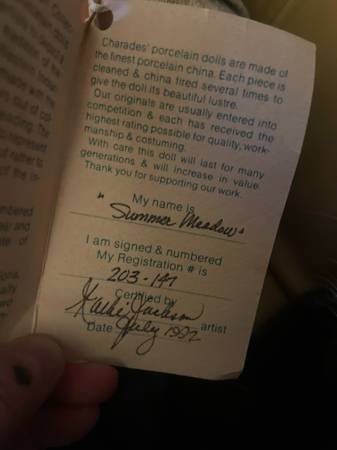 Charades' porcelain dolls are made of
the finest porcelain china. Each piece is
cleaned & china fired several times to
give the doll its beautiful lustre.
Our originals are usually entered into
competition & each has received the
highest rating possible for quality, work-
manship & costuming.
With care this doll will last for many
generations & will increase in value.
Thank you for supporting our work.
My name is
"Summer Meadow"
I am signed & numbered
My Registration # is
203-141
Certified by
Jackson
artist
Date July 1992